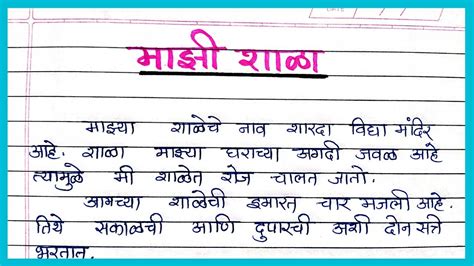 माझी शाळा
माझ्या शाळेचे नाव शारदा विद्या मंदिर
आहे. शाळा माझ्या घराच्या अगदी जवळ आहे
त्यामुळे मी शाळेत रोज चालत जातो.
आमच्या शाळेची इमारत चार मजली आहे.
तिथे सकाळची आणि दुपारची अशी दोन सत्रे
भरतात.